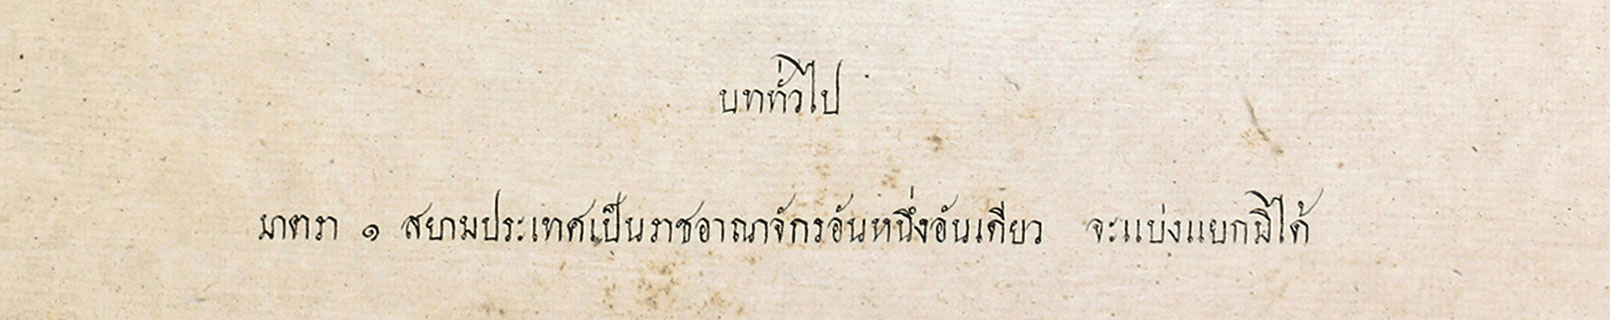 บททั่วไป
มาตรา ๑ สยามประเทศเป็นราชอาณาจักรอันหนึ่งอันเดียว จะแบ่งแยกมิได้